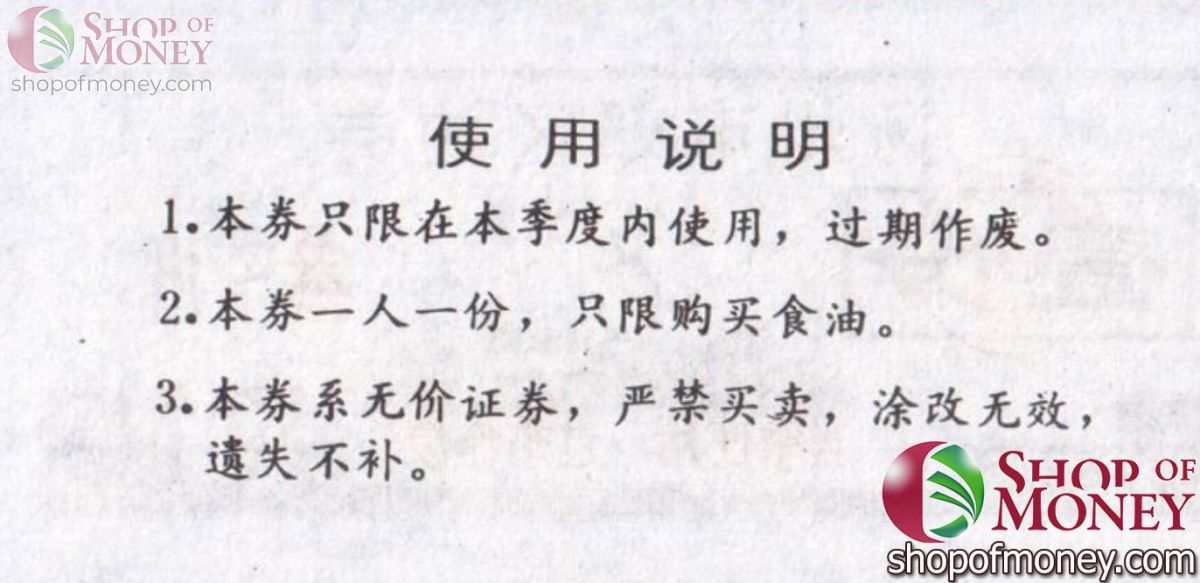 SHOP OF
MONEY
shopofmoney.com
使用说明
1.本券只限在本季度内使用，过期作废。
2.本券一人一份，只限购买食油。
3.本券系无价证券，严禁买卖，涂改无效，
遗失不补。
SHOP OF
MONEY
shopofmoney.com